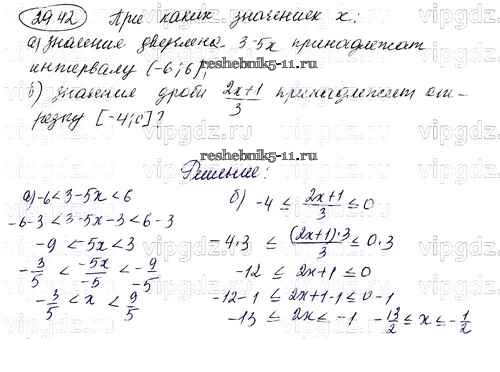 29.42 При каких значениях x:
а) значения двучлена 3-5x принадлежат
интервалу (-6; 6);
б) значения дроби (2x+1)/3 принадлежат от-
резку [-4; 0]?
reshebnik5-11.ru
Решение:
а) -6 < 3-5x < 6
-6-3 < 3-5x-3 < 6-3
-9 < -5x < 3
-3/5 < -5x/-5 < -9/-5
-3/5 < x < 9/5
б) -4 ≤ (2x+1)/3 ≤ 0
-4·3 ≤ (2x+1)·3/3 ≤ 0·3
-12 ≤ 2x+1 ≤ 0
-12-1 ≤ 2x+1-1 ≤ 0-1
-13 ≤ 2x ≤ -1 -13/2 ≤ x ≤ -1/2
reshebnik5-11.ru
vipgdz.ru